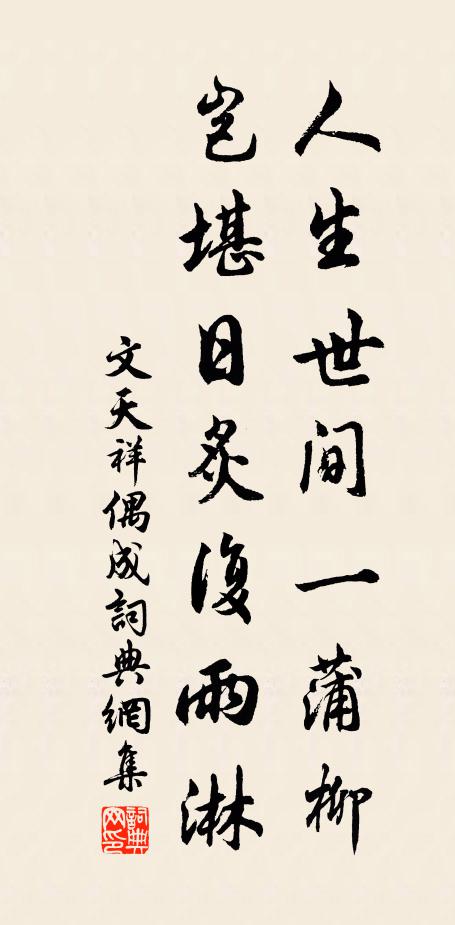 人生世间一蒲柳
岂堪日炙復雨淋
文天祥偶成詞典網集
詞典网印